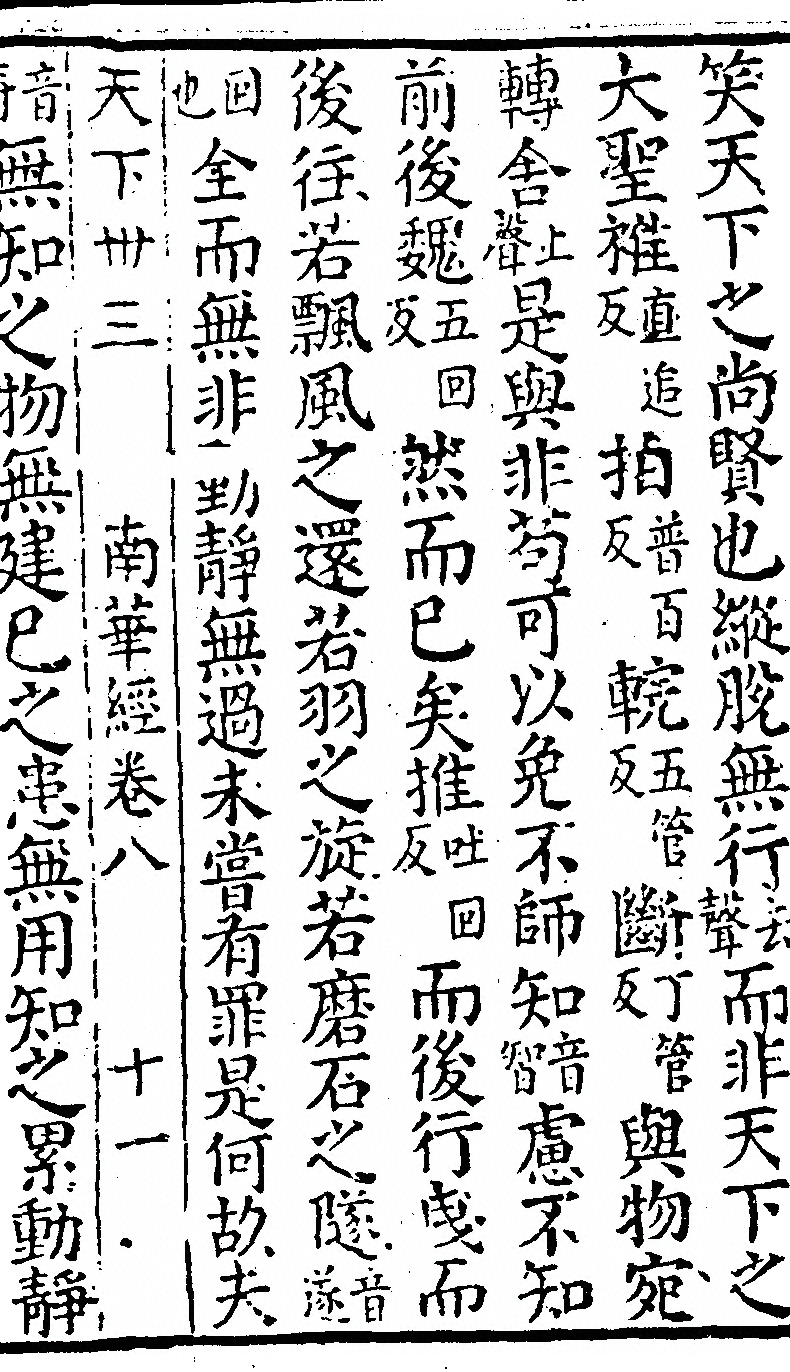 笑天下之尚賢也縱脫無行去聲而非天下之
大聖椎直追反拍普百反輐五管反斷丁管反與物宛
轉舍上聲是與非苟可以免不師知音智慮不知
前後魏五回反然而已矣推吐回反而後行曳而
後往若飄風之還若羽之旋若磨石之隧音遂
回也全而無非動靜無過未嘗有罪是何故夫
天下卅三 南華經卷八 十一
音無知之物無建已之患無用知之累動靜